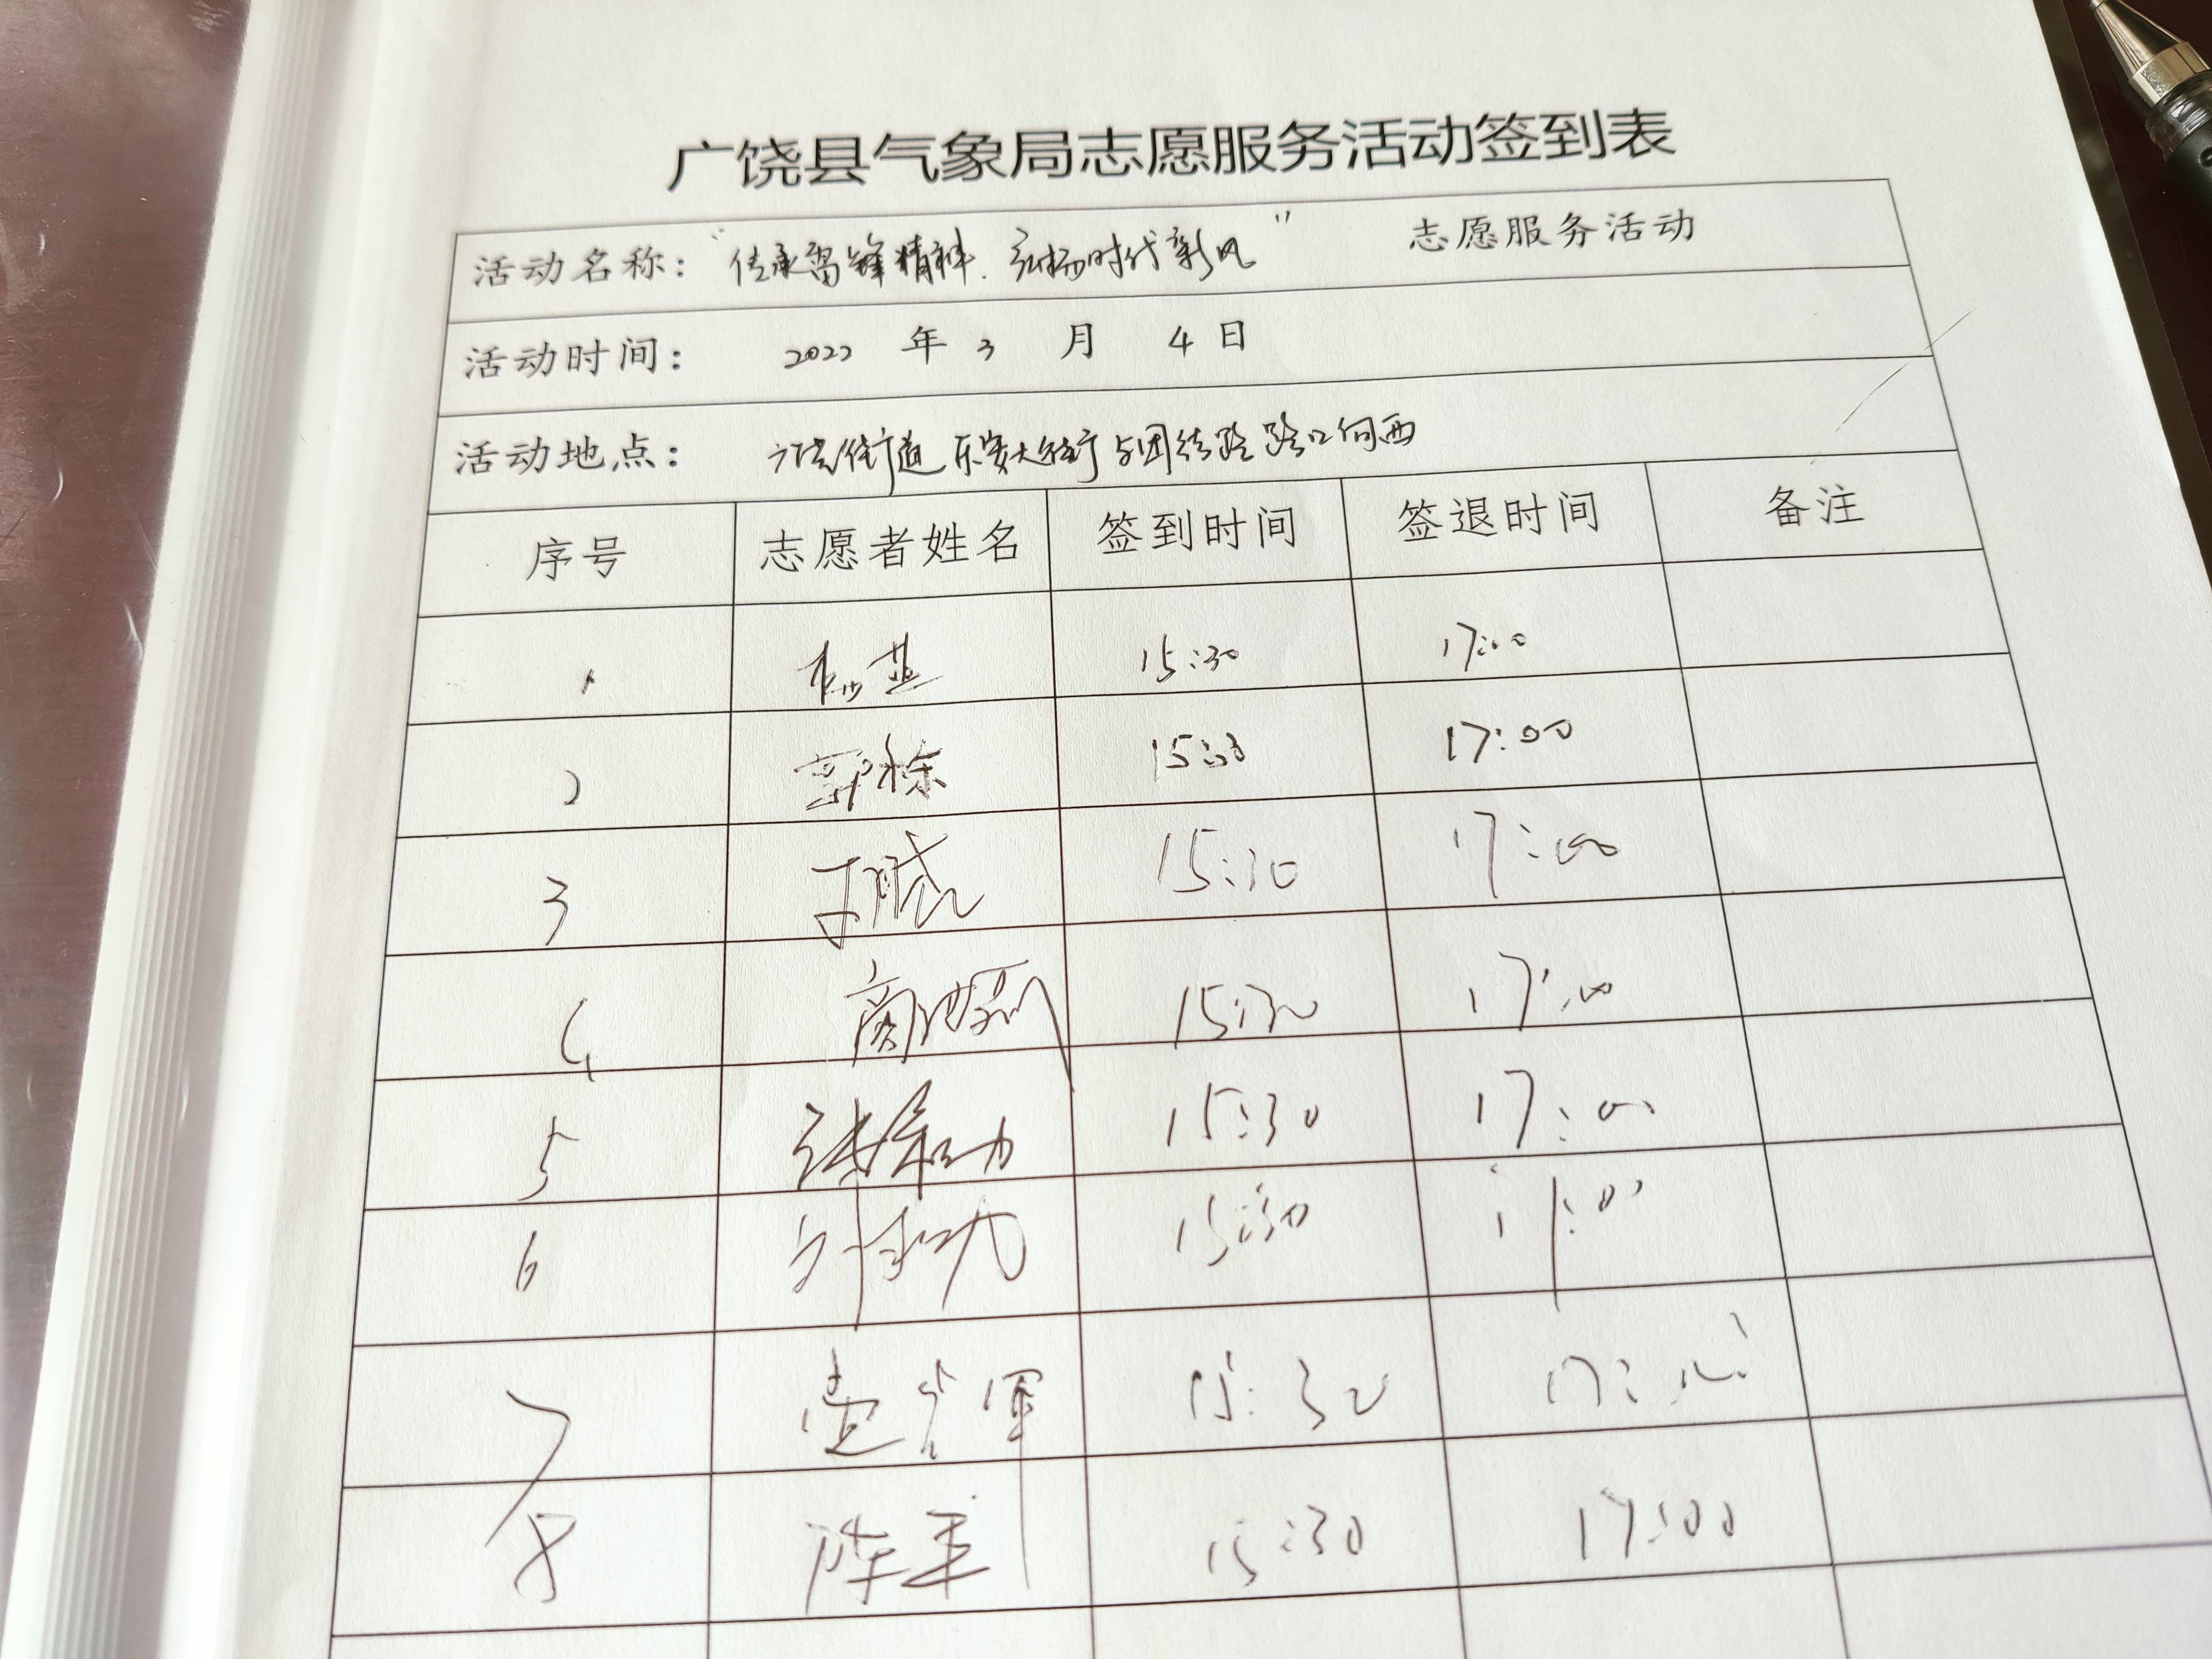 广饶县气象局志愿服务活动签到表
活动名称：“传承雷锋精神．弘扬时代新风” 志愿服务活动
活动时间： 2022 年 3 月 4 日
活动地点： 广饶街道乐安大街与团结路路口向西
序号 志愿者姓名 签到时间 签退时间 备注
1 15:30 17:00
2 15:30 17:00
3 15:30 17:00
4 15:30 17:00
5 15:30 17:00
6 15:30 17:00
7 15:30 17:00
8 15:30 17:00